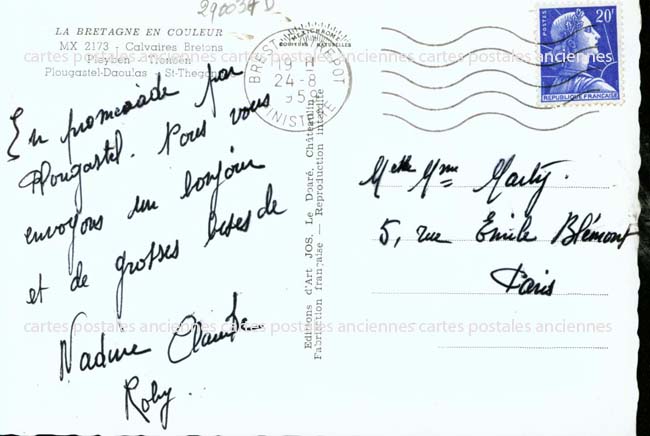 290034 D
LA BRETAGNE EN COULEUR
MX 2173 - Calvaires Bretons
Pleyben - Tronoën
Plougastel-Daoulas - St-Thégonnec
En promenade par
Plougastel. Nous vous
envoyons un bonjour
et de grosses bises de
Nadine Claude
Roby.
BREST
19 H
24-8
FINISTERE
Editions d'Art JOS. Le Doaré, Châteaulin
Fabrication française — Reproduction interdite
POSTES
20F
REPUBLIQUE FRANÇAISE
Mr et Mme Marty.
5, rue Émile Blémont
Paris
cartes postales anciennes cartes postales anciennes cartes postales anciennes
cartes postales anciennes cartes postales anciennes cartes postales anciennes